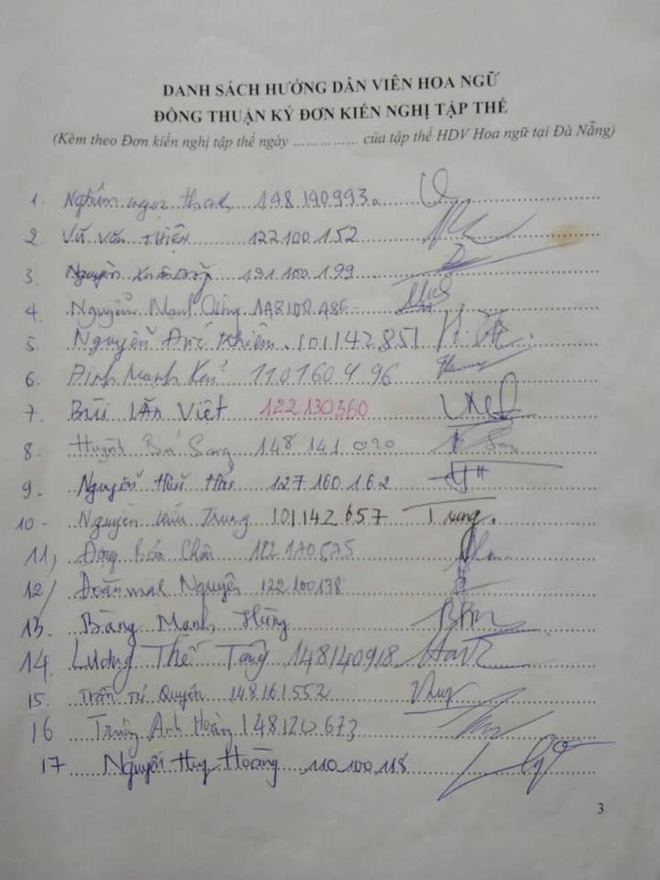 DANH SÁCH HƯỚNG DẪN VIÊN HOA NGỮ
ĐỒNG THUẬN KÝ ĐƠN KIẾN NGHỊ TẬP THỂ
(Kèm theo Đơn kiến nghị tập thể ngày ................ của tập thể HDV Hoa ngữ tại Đà Nẵng)
1. Nghiêm ngọc 148190993.
2 Vũ Văn Thiện 122100152
3. Nguyễn 191100199
4. Nguyễn Mạnh
5. Nguyễn Đức Khiêm. 101142851
6. Đinh Mạnh 110160496
7. Bùi Văn Việt 122130360
8. Huỳnh Bá Sang 148141090 Sang
9. Nguyễn Hữu 127160162
10- Nguyễn Trung 101142657 Trung.
11, Đặng
12/ Đoàn Nguyên 122100138
13. Bàng Mạnh Hùng
14. Lương Thế Tang 148140918
15. Trần Tú Quyên 148161552
16 Trương Anh Hoàng
17 Nguyễn Huy Hoàng 110100115
3